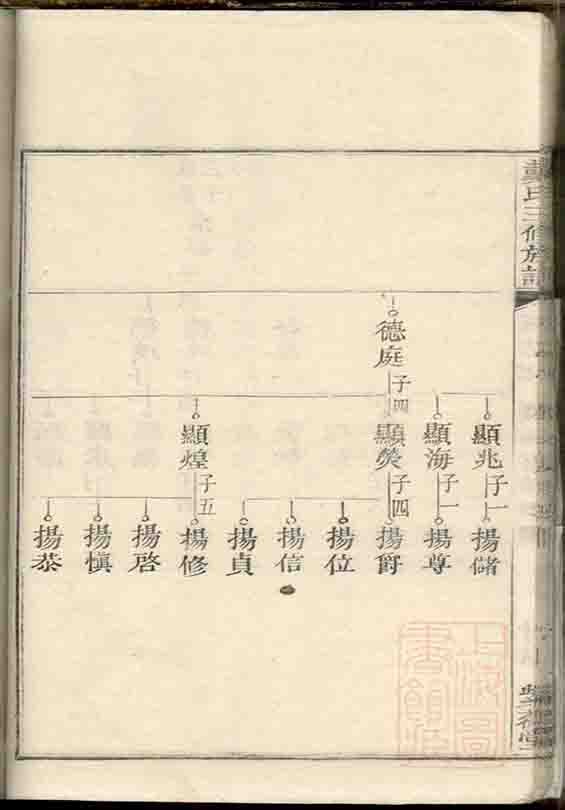 戴氏三修族譜
德庭
子四
顯兆
子一
顯海
子一
顯熒
子四
顯煌
子五
揚儲
揚尊
揚爵
揚位
揚信
揚貞
揚修
揚啓
揚慎
揚恭
上海圖書館藏